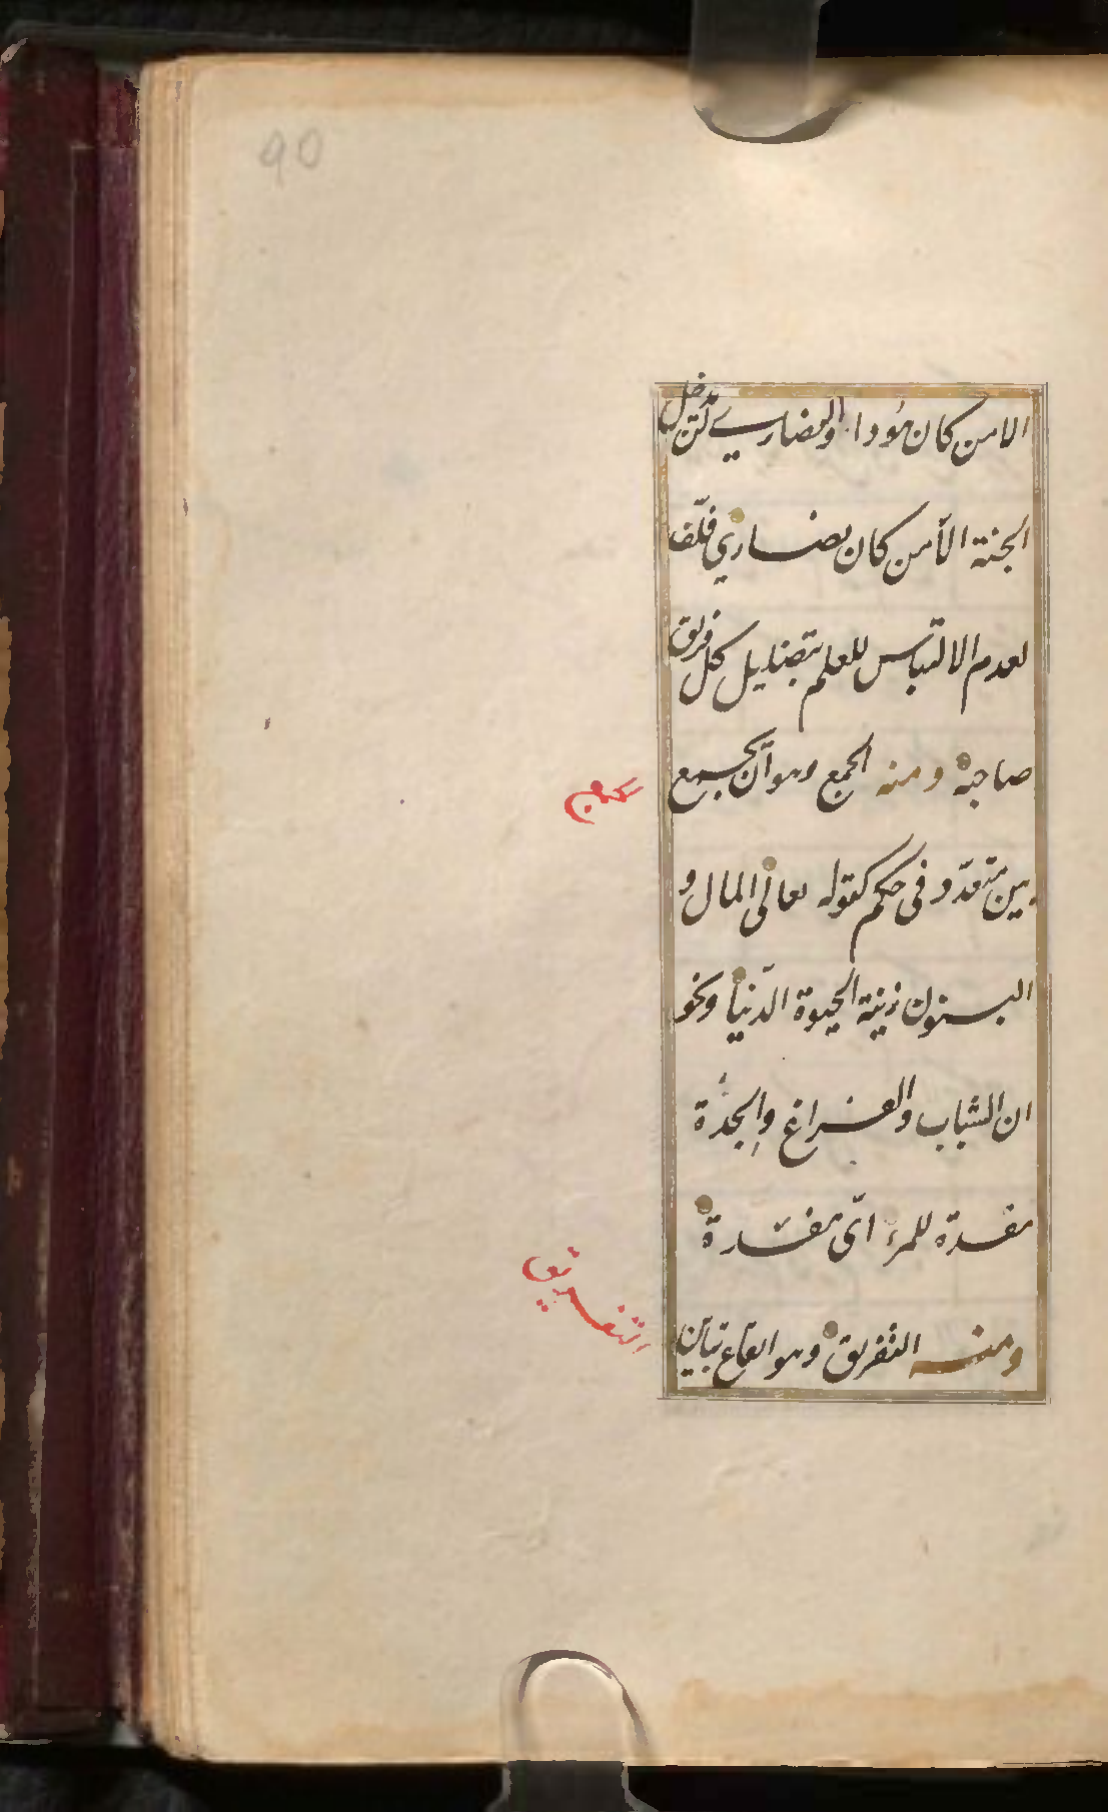 90
الا من كان هُودا والنصاري لن يدخل
الجنة الا من كان نصاري فلّف
لعدم الالتباس للعلم بتضليل كل فريق
صاحبه ومنه الجمع وهو ان يجمع
الجمع
بين متعدّد فى حكم كقوله تعالى المال و
البنون زينة الحيوة الدّنيا ونحو
ان الشباب والفراغ والِجدَة
مفسدة للمرء اىّ مفسدة
التفريق
ومنه التفريق وهو ايقاع تباين